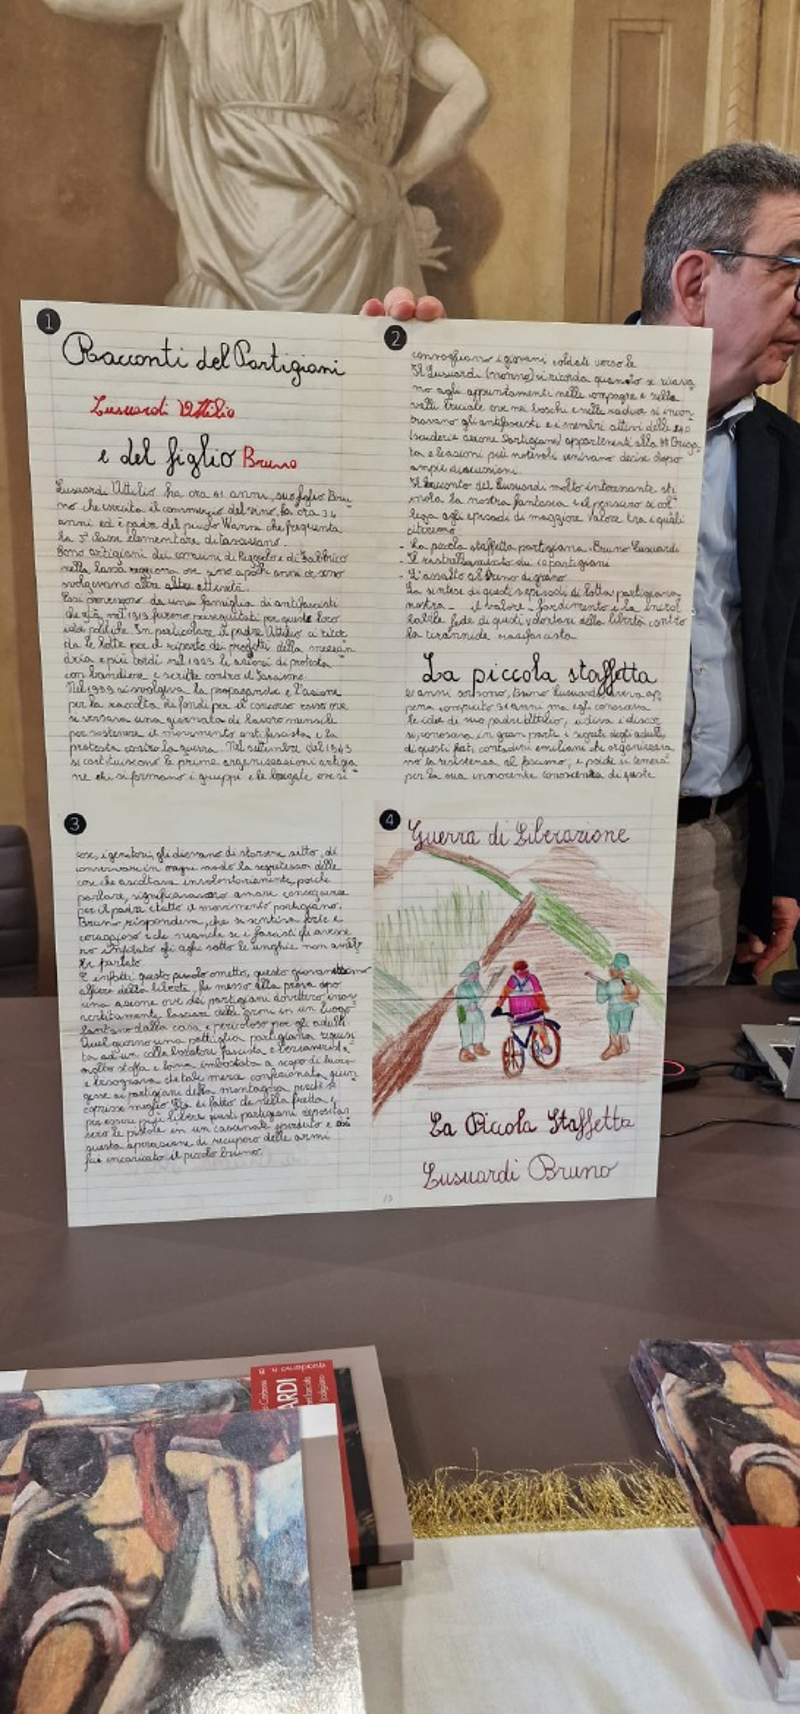 1
Racconti dei Partigiani
Lusuardi Uttilio
e del figlio Bruno
Lusuardi Uttilio ha ora 61 anni, suo figlio Bru-
no che esercita il commercio del vino, ha ora 34
anni ed è padre del piccolo Wanni che frequenta
la 3ª classe elementare di
Sono artigiani dei comuni di Reggiolo e di Fabbrico
nella bassa reggiana ove sino a pochi anni or sono
svolgevano altre attività.
Essi provengono da una famiglia di antifascisti
che già nel 1919 furono perseguitati per queste loro
idee politiche. In particolare il padre Uttilio ci ricor
da le lotte per il riparto dei prodotti della mezza
dria e più tardi nel 1923 le azioni di protesta
con bandiere e scritte contro il fascismo.
Nel 1939 si svolgeva la propaganda e l'azione
per la raccolta di fondi per il soccorso rosso ove
si versava una giornata di lavoro mensile
per sostenere il movimento antifascista e la
protesta contro la guerra. Nel settembre del 1943
si costituiscono le prime organizzazioni artigia
ne che si formano i gruppi e le brigate ove si
2
convogliano i giovani soldati verso le
Il Lusuardi (nonno) si ricorda quando si recava
no agli appuntamenti nelle campagne e nella
valli fluviale ove nei boschi e nelle radura si incon
travano gli antifascisti e i membri attivi delle S.A.P.
(squadre azione Partigiane) appartenenti alla 77 Briga
ta e le azioni più notevoli venivano decise dopo
ampie discussioni.
Il racconto del Lusuardi molto interessante sti
mola la nostra fantasia e il pensiero si col
lega agli episodi di maggiore valore tra i quali
citeremo
- La piccola staffetta partigiana - Bruno Lusuardi
- Il rastrellamento dei 10 partigiani
- L'assalto al treno di grano
La sintesi di questi episodi di lotta partigiana
nostra - il valore - l'ardimento e la incrol
labile fede di questi volontari della libertà contro
la tirannide nazifascista
La piccola staffetta
anni or sono, Bruno Lusuardi aveva ap
pena compiuto anni ma egli conosceva
le idee di suo padre Uttilio, udiva i discor
si, conosceva in gran parte i segreti degli adulti,
di questi fieri contadini emiliani che organizzava
no la resistenza al fascismo; e poiché si temeva
per la sua innocente conoscenza di queste
3
cose, i genitori, gli dicevano di starsene zitto, di
conservare in ogni modo la segretezza delle
cose che ascoltava involontariamente, poiché
parlare, significavano amare conseguenze
per il padre e tutto il movimento partigiano.
Bruno rispondeva, che si sentiva forte e
coraggioso e che neanche se i fascisti gli avesse
ro infilato gli aghi sotto le unghie non avreb
be parlato.
E infatti questo piccolo ometto, questo giovanissimo
alfiere della libertà, fu messo alla prova dopo
una azione ove dei partigiani dovettero inav
vertitamente lasciare delle armi in un luogo
lontano dalla casa e pericoloso per gli adulti
Quel giorno una pattuglia partigiana requisi
ta ad un collaboratore fascista e borsanerista
molta stoffa e lana imboscata a scopo di lucro
e bisognava che tale merce confezionata giun
gesse ai partigiani della montagna perché si
coprisse meglio. Sta di fatto che nella fretta e
per essere più liberi questi partigiani deposita
rono le pistole in un cascinale sperduto e
questa operazione di recupero delle armi
fu incaricato il piccolo bruno.
4
Guerra di Liberazione
La Piccola Staffetta
Lusuardi Bruno
13